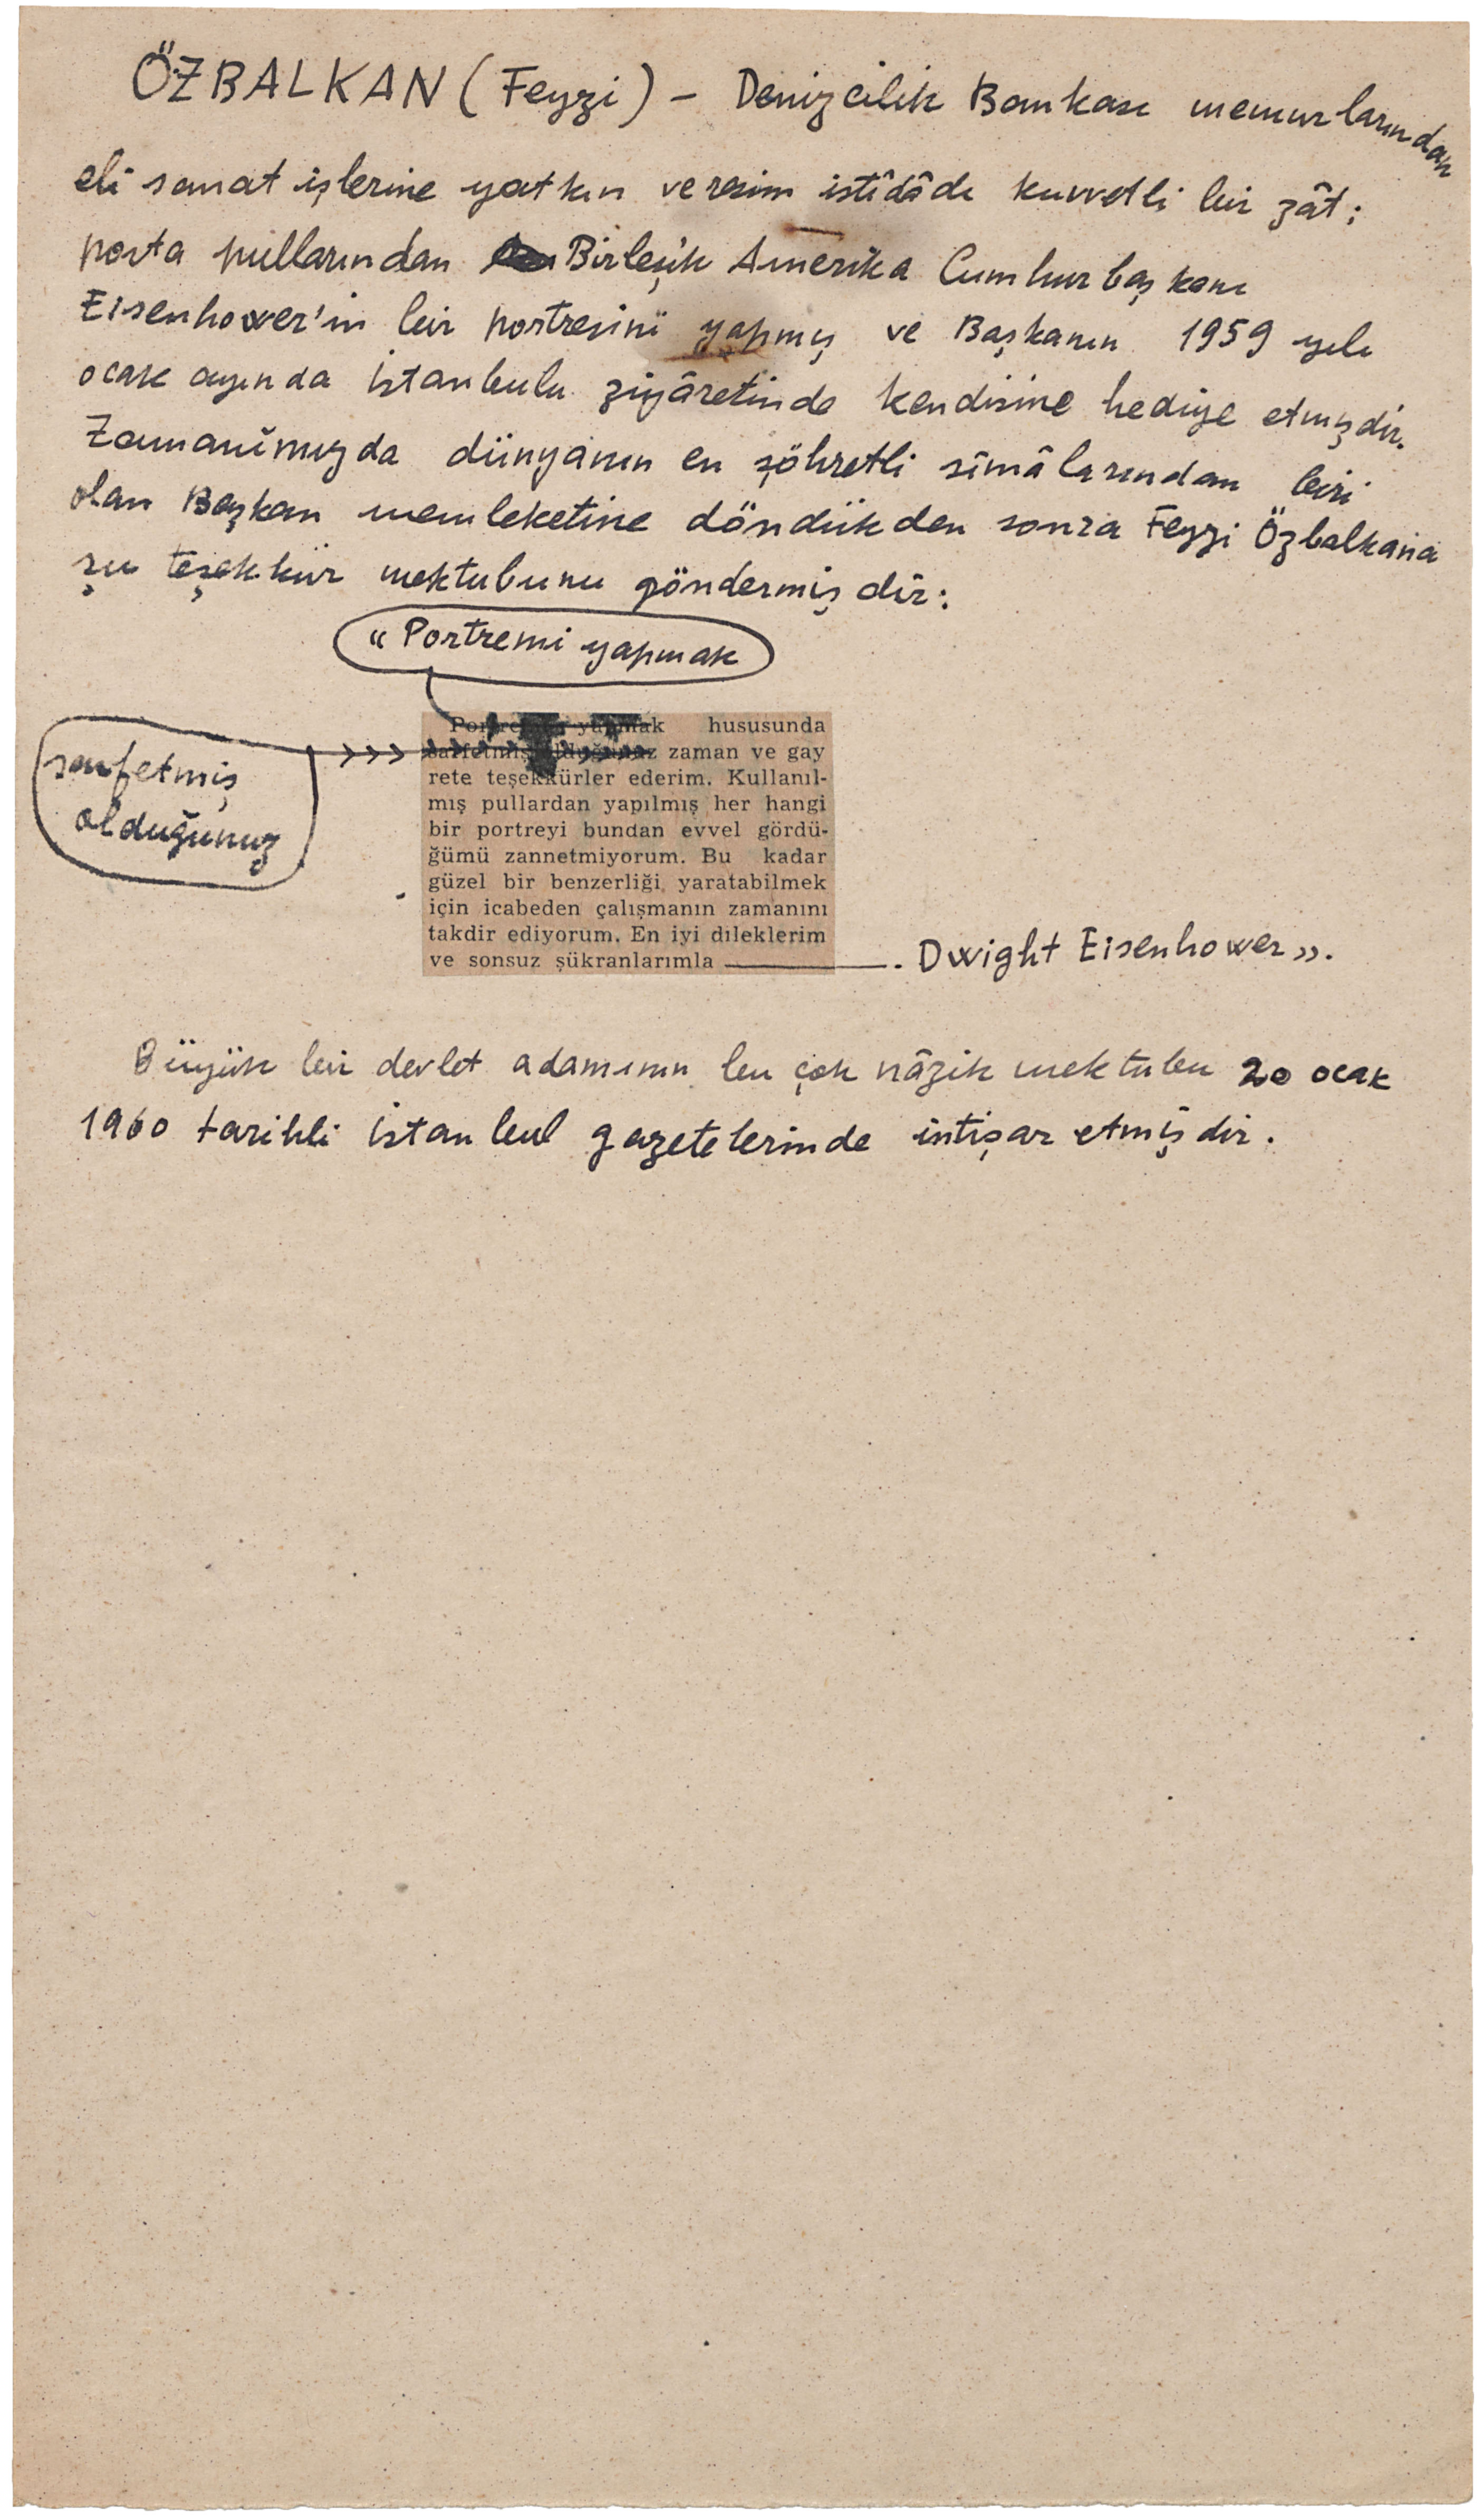 ÖZBALKAN (Feyzi) – Denizcilik Bankası memurlarından
eli sanat işlerine yatkın ve resim istîdâdı kuvvetli bir zât;
posta pullarından Birleşik Amerika Cumhurbaşkanı
Eisenhower'in bir portresini yapmış ve Başkanın 1959 yılı
ocak ayında İstanbulu ziyâretinde kendisine hediye etmişdir.
Zamanımızda dünyanın en şöhretli sîmâlarından biri
olan Başkan memleketine döndükden sonra Feyzi Özbalkana
şu teşekkür mektubunu göndermişdir:
« Portremi yapmak
hususunda
sarfetmiş
olduğunuz
zaman ve gay
rete teşekkürler ederim. Kullanıl-
mış pullardan yapılmış her hangi
bir portreyi bundan evvel gördü-
ğümü zannetmiyorum. Bu kadar
güzel bir benzerliği yaratabilmek
için icabeden çalışmanın zamanını
takdir ediyorum. En iyi dileklerim
ve sonsuz şükranlarımla ———. Dwight Eisenhower».
Büyük bir devlet adamının bu çok nâzik mektubu 20 ocak
1960 tarihli İstanbul gazetelerinde intişar etmişdir.